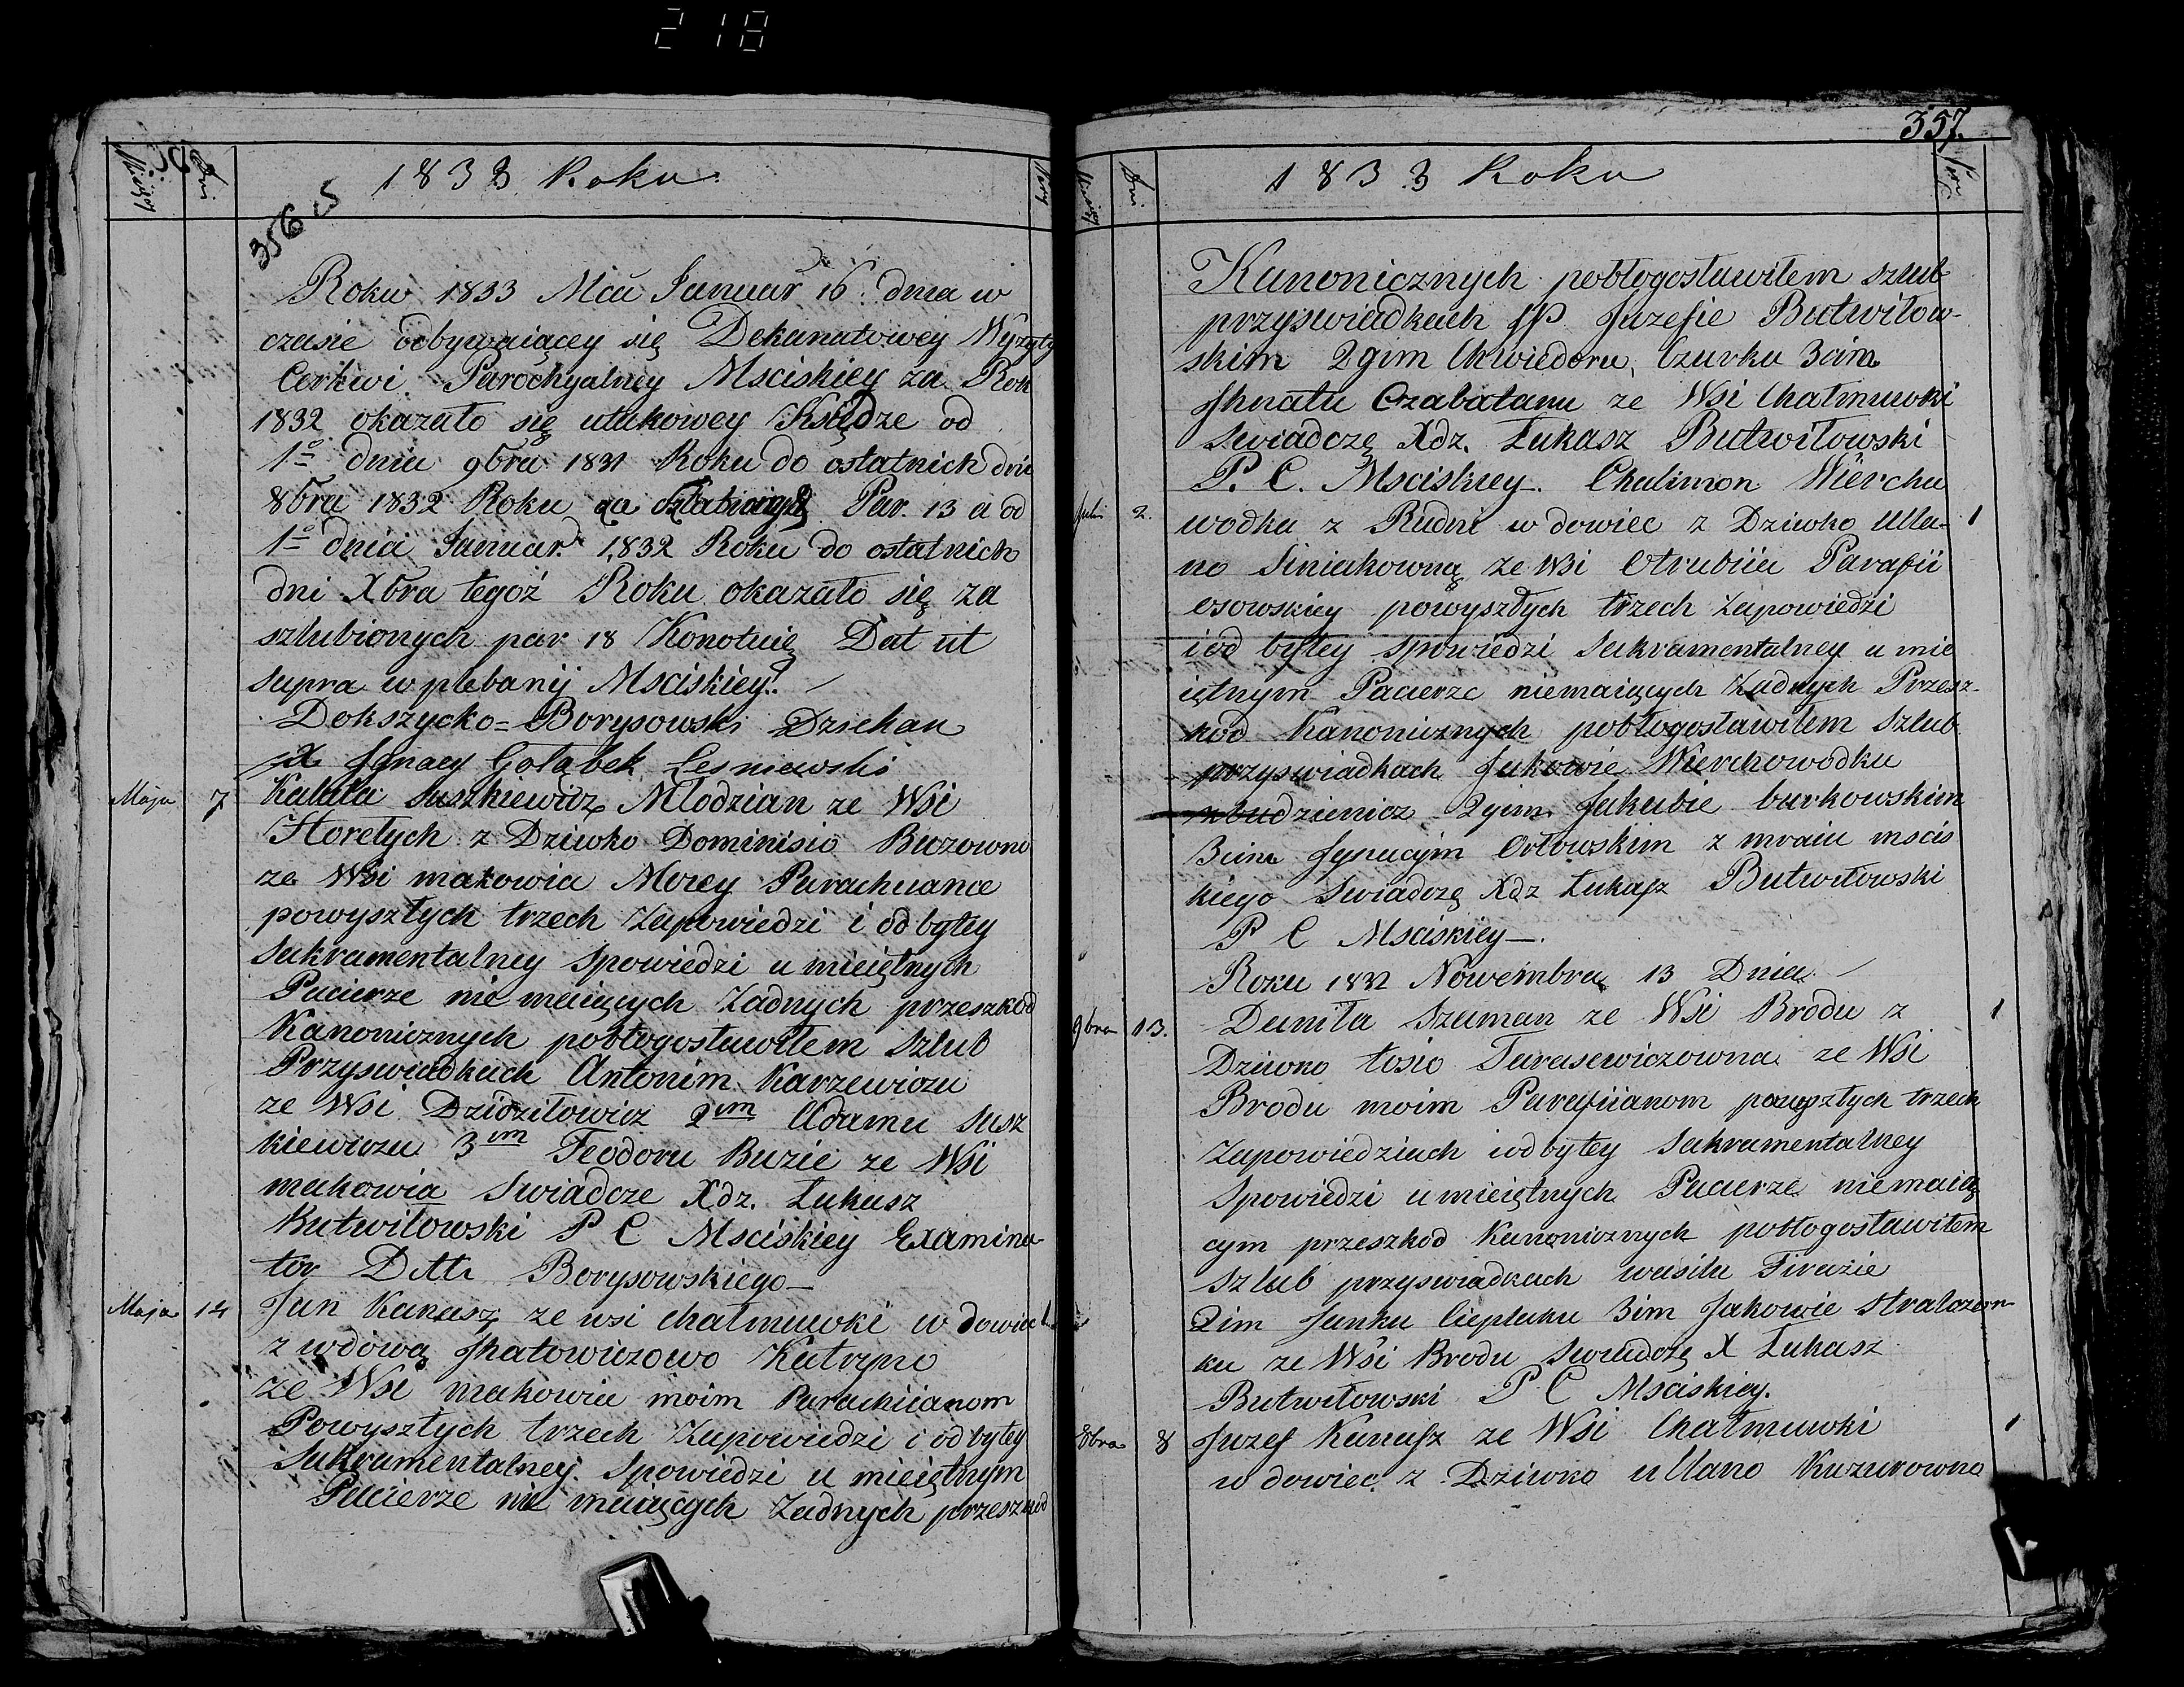 218
Miesiąc
Dni
1833 Roku
Pary
356
Roku 1833 Mca Januar 16 dnia w
czasie odbywaiącey się Dekanatowey Wyzyty
Cerkwi Parochyalney Msciskiey za Rok
1832 okazało się w Księdze od
1o dnia 9bra 1831 Roku do ostatnich dni
8bra 1832 Roku Par. 13 a od
1o dnia Januar. 1832 Roku do ostatnich
dni Xbra tegoż Roku okazało się za
szlubionych par 18 Konotuię Dat ut
supra w plebanij Msciskiey.
Dokszycko=Borysowski Dziekan
X Jgnacy Gołąbek Lesniewski
Maja 7 Kaluta Suszkiewicz Mlodzian ze Wsi
Horełych z Dziwko Dominisio Buzowno
ze Wsi makowia Moiey
powyszłych trzech Zapowiedzi i odbyłey
Sakramentalney Spowiedzi umieiętnych
Pacierze nie maiących Zadnych przeszkod
Kanonicznych pobłogosławiłem szlub
Przyswiadkach Antonim Karzewiczu
ze Wsi Dzidziłowicz 2im Adamu Susz
kiewiczu 3im Teodoru Buzie ze Wsi
makowia Swiadcze Xdz. Łukasz
Butwiłowski P C Msciskiey Examina
tor Dttu Borysowskiego
Maja 14 Jan Kanasz ze wsi Chałmuwki wdowiec
z wdową Jhatowiczowo Katryno
ze Wsi makowia moim Parachiianom
Powyszłych trzech Zapowiedzi i odbyłey
Sakramentalney Spowiedzi umieiętnym
Pacierze nie maiących Zadnych przeszkod
357.
Miesiąc
Dni
1833 Roku
Pary
Kanonicznych pobłogosławiłem szlub
przyswiadkach JP Juzefie Butwiłow-
skim 2gim Chwiedoru Czurku 3cim
Jhnatu Czabatanu ze Wsi Chałmuwki
Swiadczę Xdz. Łukasz Butwiłowski
P. C. Msciskiey. Chalimon Wiercha
Juli 2. wodka z Rudni wdowiec z Dziwko Ula- 1
no Siniakowną ze Wsi Otrubiia Parafii
osowskiey powyszłych trzech Zapowiedzi
i od byłey spowiedzi Sakramentalney umie
iętnym Pacierze niemaiących Zadnych Przesz-
kod Kanonicznych pobłogosławiłem Szlub
przyswiadkach Jakowie Wierchowodku
2gim Jakubie burkowskim
3cim Jgnacym Orłowskim z mscis
kiego Swiadczę Xdz Łukasz Butwiłowski
P C Msciskiey.
Roku 1832 Nowembra 13 Dnia
9bra 13. Daniła Szaman ze Wsi Brodu z 1
Dziwko Łosio Tarasewiczowna ze Wsi
Brodu moim Parafiianom powyszłych trzech
Zapowiedziach iodbyłey Sakramentalney
Spowiedzi umieiętnych Pacierze niemaią
cym przeszkod Kanonicznych pobłogosławiłem
szlub przyswiadkach wasilu Tirazie
2im Janku Cieplaku 3im Jakowie Stralczon-
ku ze Wsi Brodu Swiadczę X Łukasz
Butwiłowski P C Msciskiey.
8bra 8 Juzef Kanasz ze Wsi Chałmuwki 1
wdowiec z Dziwko ullano Kuzurowno